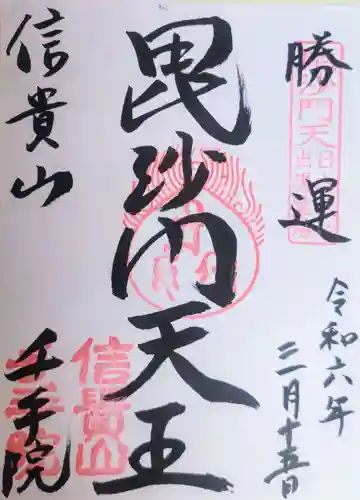 勝運
令和六年
三月十五日
毘沙門天王
信貴山
千手院
信貴山
千手院